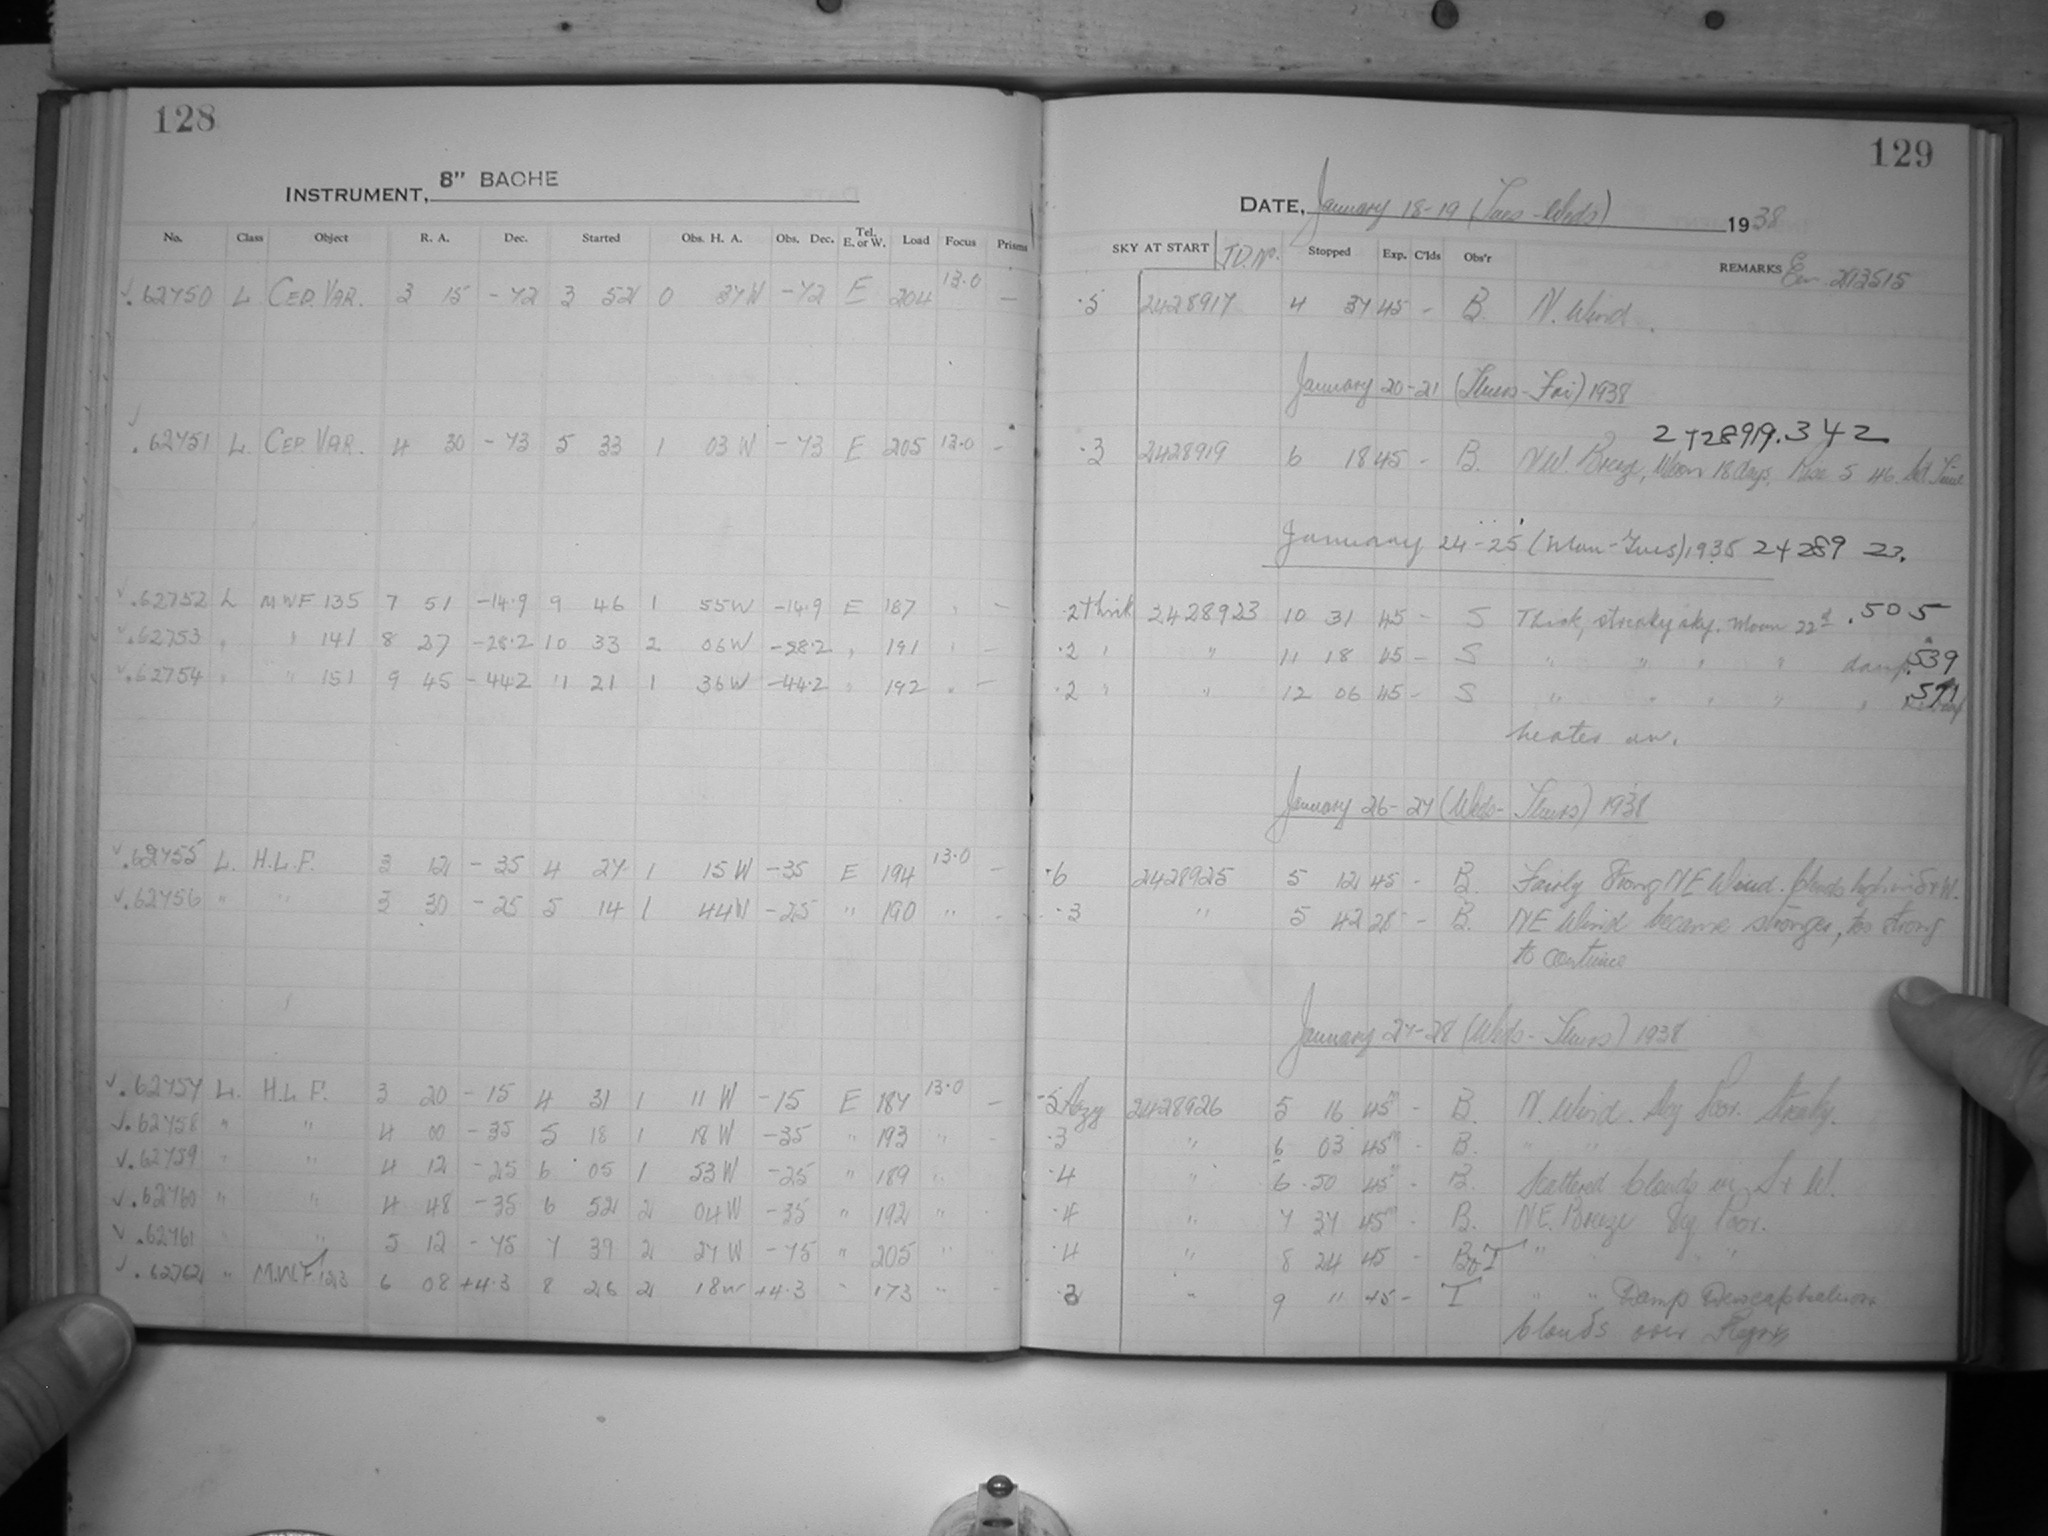 128
129
INSTRUMENT, 8" BACHE
DATE, January 18-19 (Tues-Weds) 1938
No. Class Object R. A. Dec. Started Obs. H. A. Obs. Dec. Tel. E. or W. Load Focus Prisms SKY AT START J.D. No. Stopped Exp. C'lds Obs'r REMARKS
.62750 L CEP. VAR. 3 15 -72 3 52 0 37W -72 E 204 13.0 — .5 2428917 4 37 45 - B. N. Wind.
January 20-21 (Thurs-Fri) 1938
2428919.342
.62751 L CEP. VAR. 4 30 -73 5 33 1 03W -73 E 205 13.0 - .3 2428919 6 18 45 - B. N.W. Breeze, Moon 18 days, Rise 5 46 Sid. Time
January 24-25 (Mon-Tues) 1938 24289 23.
.62752 L MWF 135 7 51 -14.9 9 46 1 55W -14.9 E 187 " - .2 thick 2428923 10 31 45 - S Thick, streaky sky. Moon 22d .505
.62753 " " 141 8 27 -28.2 10 33 2 06W -28.2 " 191 " - .2 " " 11 18 45 - S " " " " damp .539
.62754 " " 151 9 45 -44.2 11 21 1 36W -44.2 " 192 " - .2 " " 12 06 45 - S " " " " " .571
heater on.
January 26-27 (Weds-Thurs) 1938
.62755 L. H.L.F. 3 12 -35 4 27 1 15W -35 E 194 13.0 - .6 2428925 5 12 45 - B. Fairly Strong NE Wind. Clouds high in S+W.
.62756 " " 3 30 -25 5 14 1 44W -25 " 190 " - .3 " 5 42 28 - B. NE Wind became stronger, too strong
to continue
January 27-28 (Weds-Thurs) 1938
.62757 L. H.L.F. 3 20 -15 4 31 1 11W -15 E 187 13.0 - .5 Hazy 2428926 5 16 45m - B. N. Wind. Sky Poor. Streaky.
.62758 " " 4 00 -35 5 18 1 18W -35 " 193 " - .3 " 6 03 45m - B. " "
.62759 " " 4 12 -25 6 05 1 53W -25 " 189 " - .4 " 6 50 45m - B. Scattered clouds in S+W.
.62760 " " 4 48 -35 6 52 2 04W -35 " 192 " - .4 " 7 37 45m - B. NE. Breeze Sky Poor.
.62761 " " 5 12 -75 7 39 2 27W -75 " 205 " - .4 " 8 24 45 - B&T " " "
.62762 " M.W.F. 123 6 08 +4.3 8 26 2 18W +4.3 " 173 " - .3 " 9 11 45 - T " " Damp Dewcap heater on
clouds over